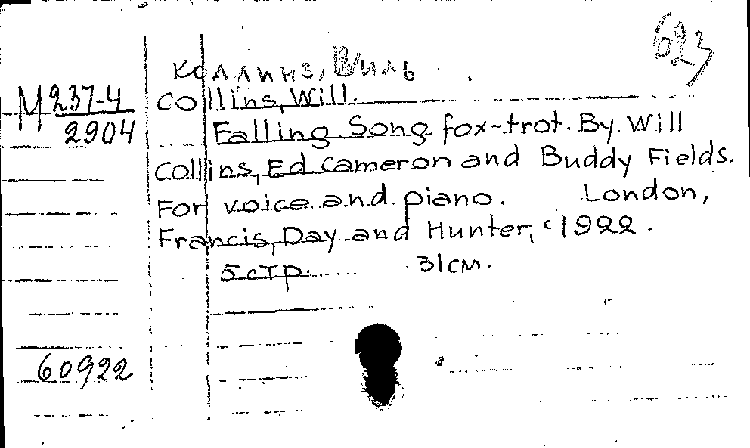 623
Коллинз, Виль
М 237-4
2904
Collins, Will.
Falling. Song fox-trot. By Will
Collins, Ed Cameron and Buddy Fields.
For voice and piano. London,
Francis, Day and Hunter, c1922.
5 стр. 31 см.
60922